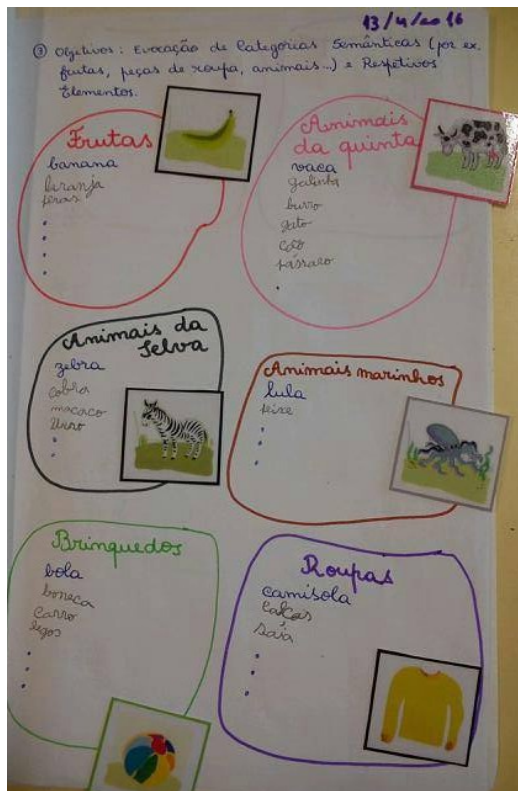 13/4/2016
③ Objetivos: Evocação de Categorias Semânticas (por ex.
frutas, peças de roupa, animais...) e Respetivos
Elementos.
Frutas
banana
laranja
peras
Animais
da quinta
vaca
galinha
burro
gato
cão
pássaro
Animais da
Selva
zebra
cobra
macaco
Animais marinhos
lula
peixe
Brinquedos
bola
boneca
carro
legos
Roupas
camisola
calças
saia